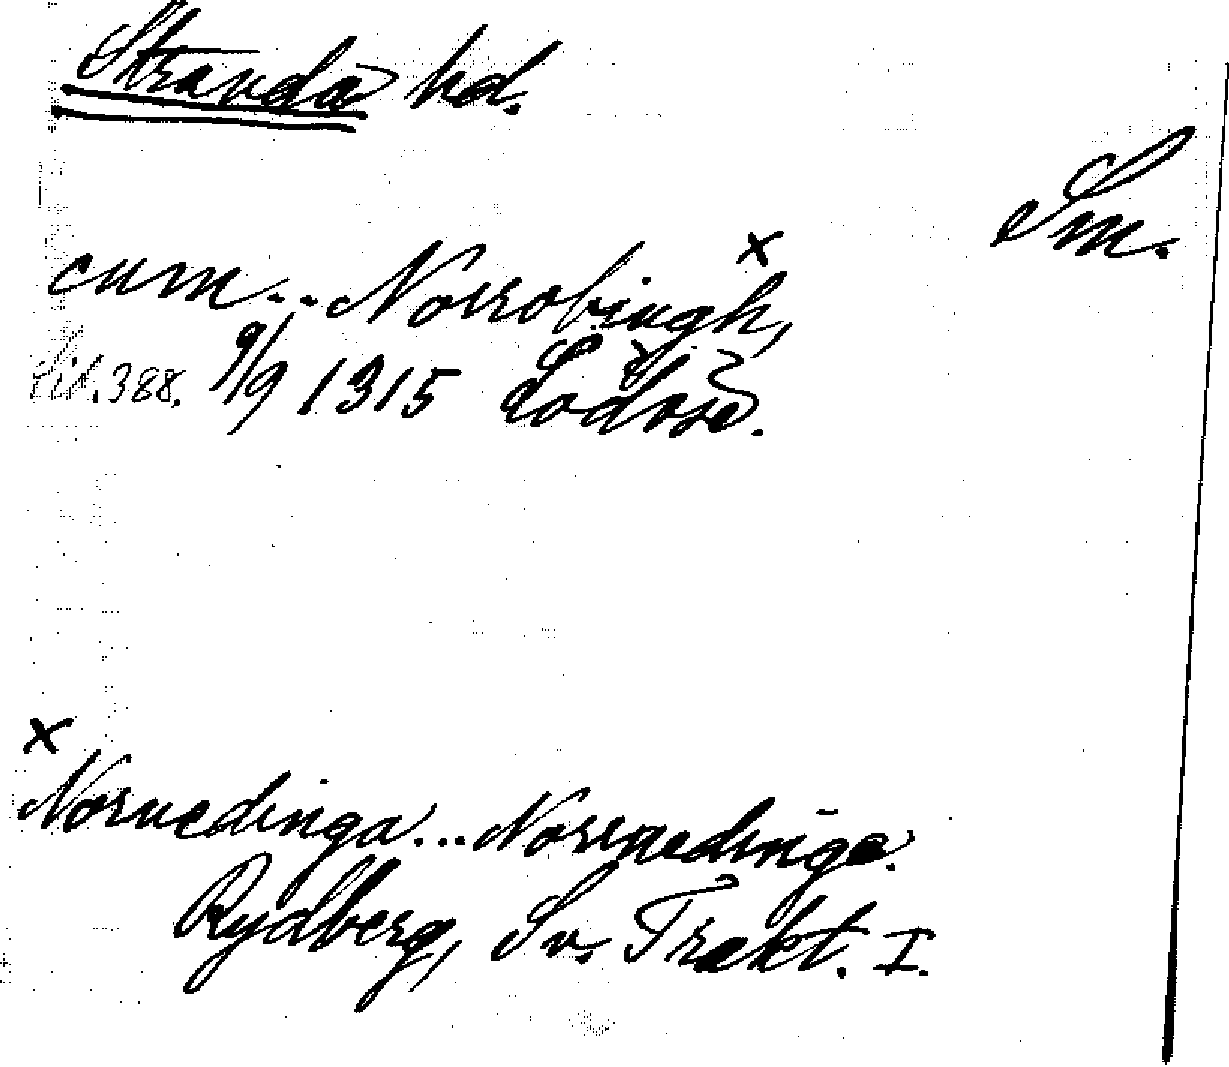 Stranda hd.
Sm.
cum... Norrobingh, x
Sid. 388. 9/9 1315 Lödöse.
x
Noruedinga... Norruedinge.
Rydberg, Sv. Trakt. I.